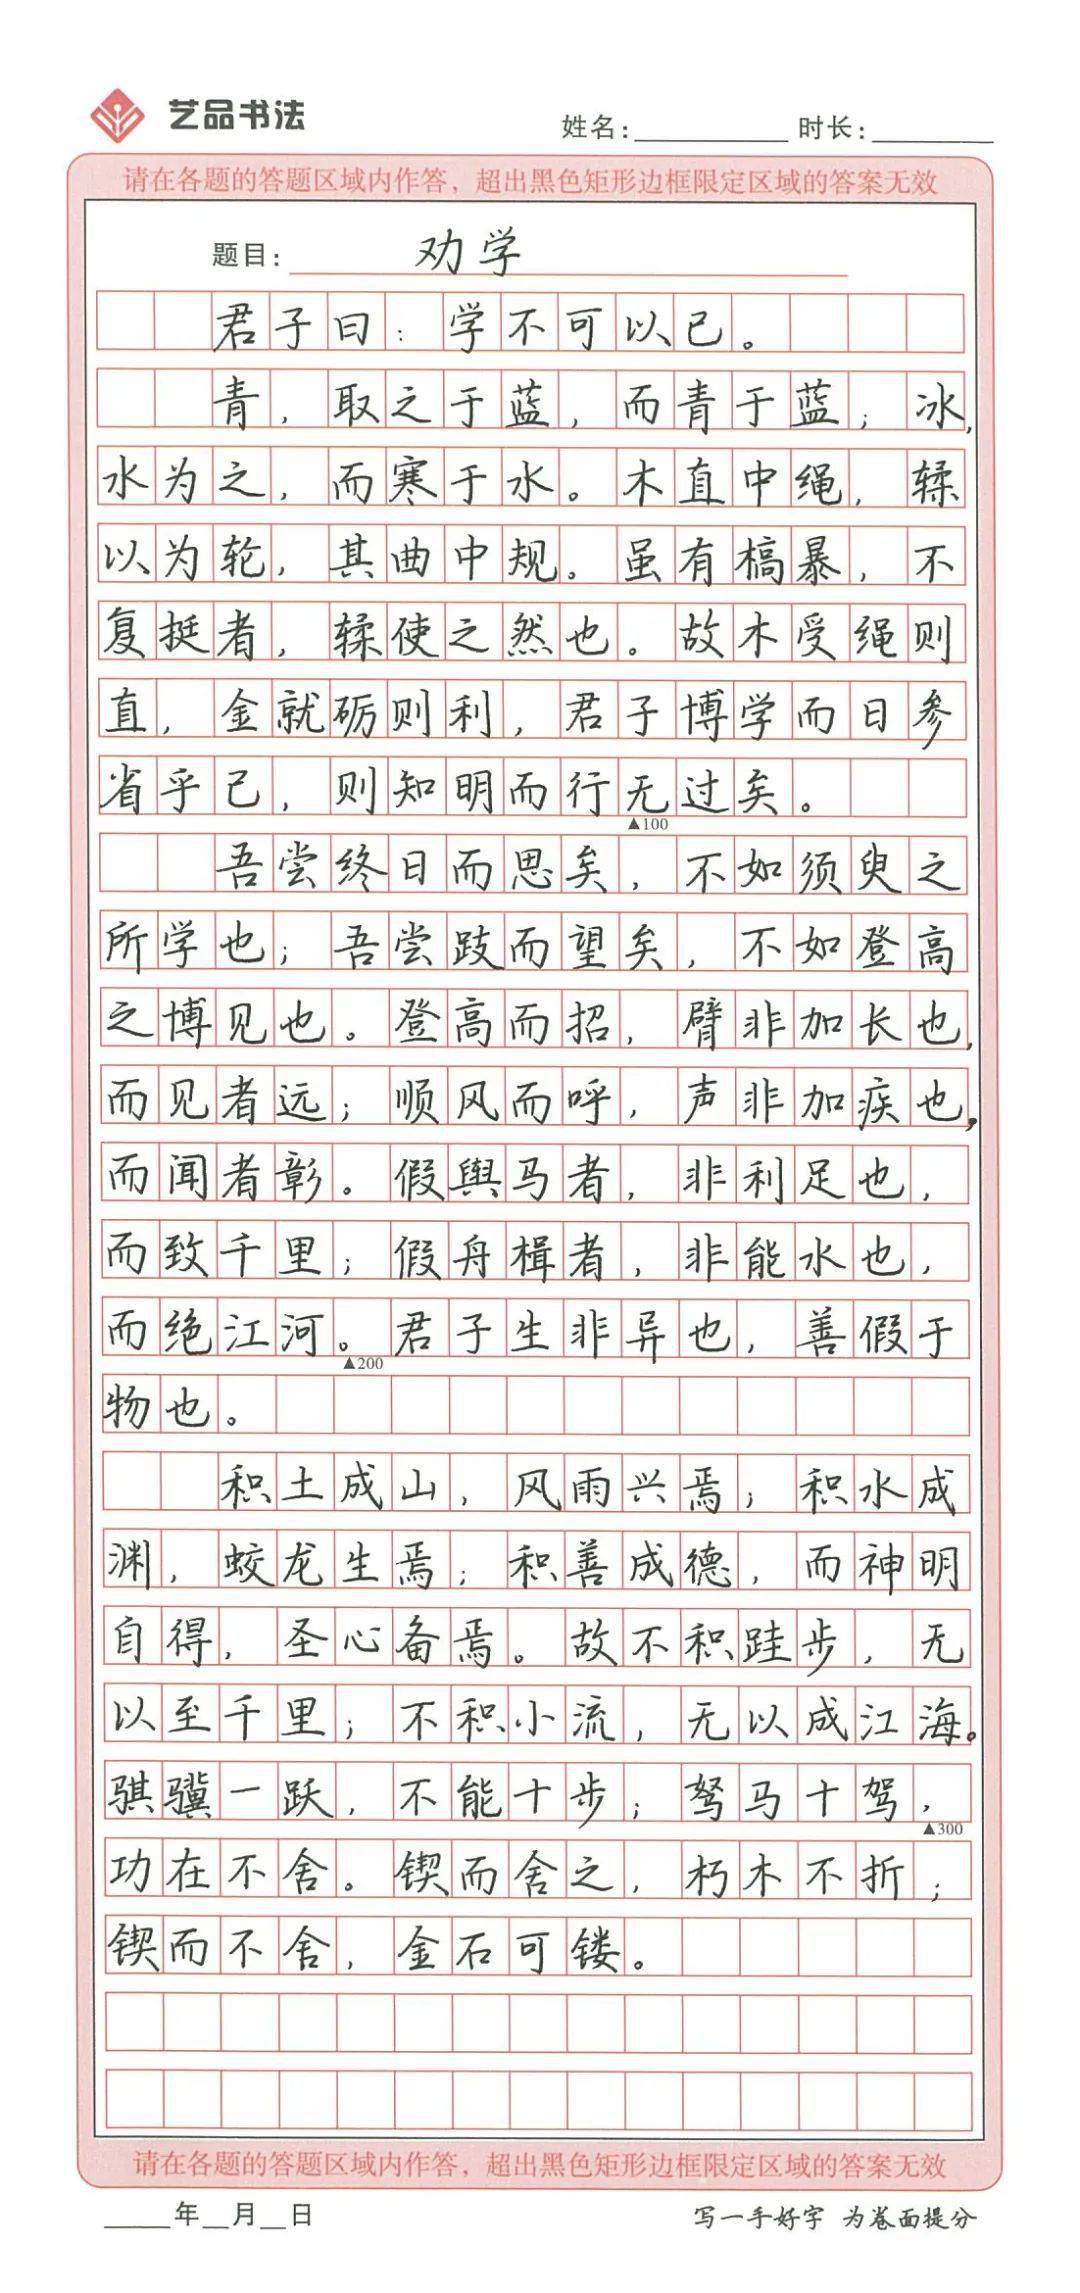 艺品书法
姓名:________ 时长:________
请在各题的答题区域内作答，超出黑色矩形边框限定区域的答案无效
题目: 劝学
君子曰：学不可以已。
青，取之于蓝，而青于蓝；冰，
水为之，而寒于水。木直中绳，𫐓
以为轮，其曲中规。虽有槁暴，不
复挺者，𫐓使之然也。故木受绳则
直，金就砺则利，君子博学而日参
省乎己，则知明而行无过矣。
▲100
吾尝终日而思矣，不如须臾之
所学也；吾尝跂而望矣，不如登高
之博见也。登高而招，臂非加长也，
而见者远；顺风而呼，声非加疾也，
而闻者彰。假舆马者，非利足也，
而致千里；假舟楫者，非能水也，
而绝江河。君子生非异也，善假于
▲200
物也。
积土成山，风雨兴焉；积水成
渊，蛟龙生焉；积善成德，而神明
自得，圣心备焉。故不积跬步，无
以至千里；不积小流，无以成江海。
骐骥一跃，不能十步；驽马十驾，
▲300
功在不舍。锲而舍之，朽木不折；
锲而不舍，金石可镂。
请在各题的答题区域内作答，超出黑色矩形边框限定区域的答案无效
____年__月__日 写一手好字 为卷面提分